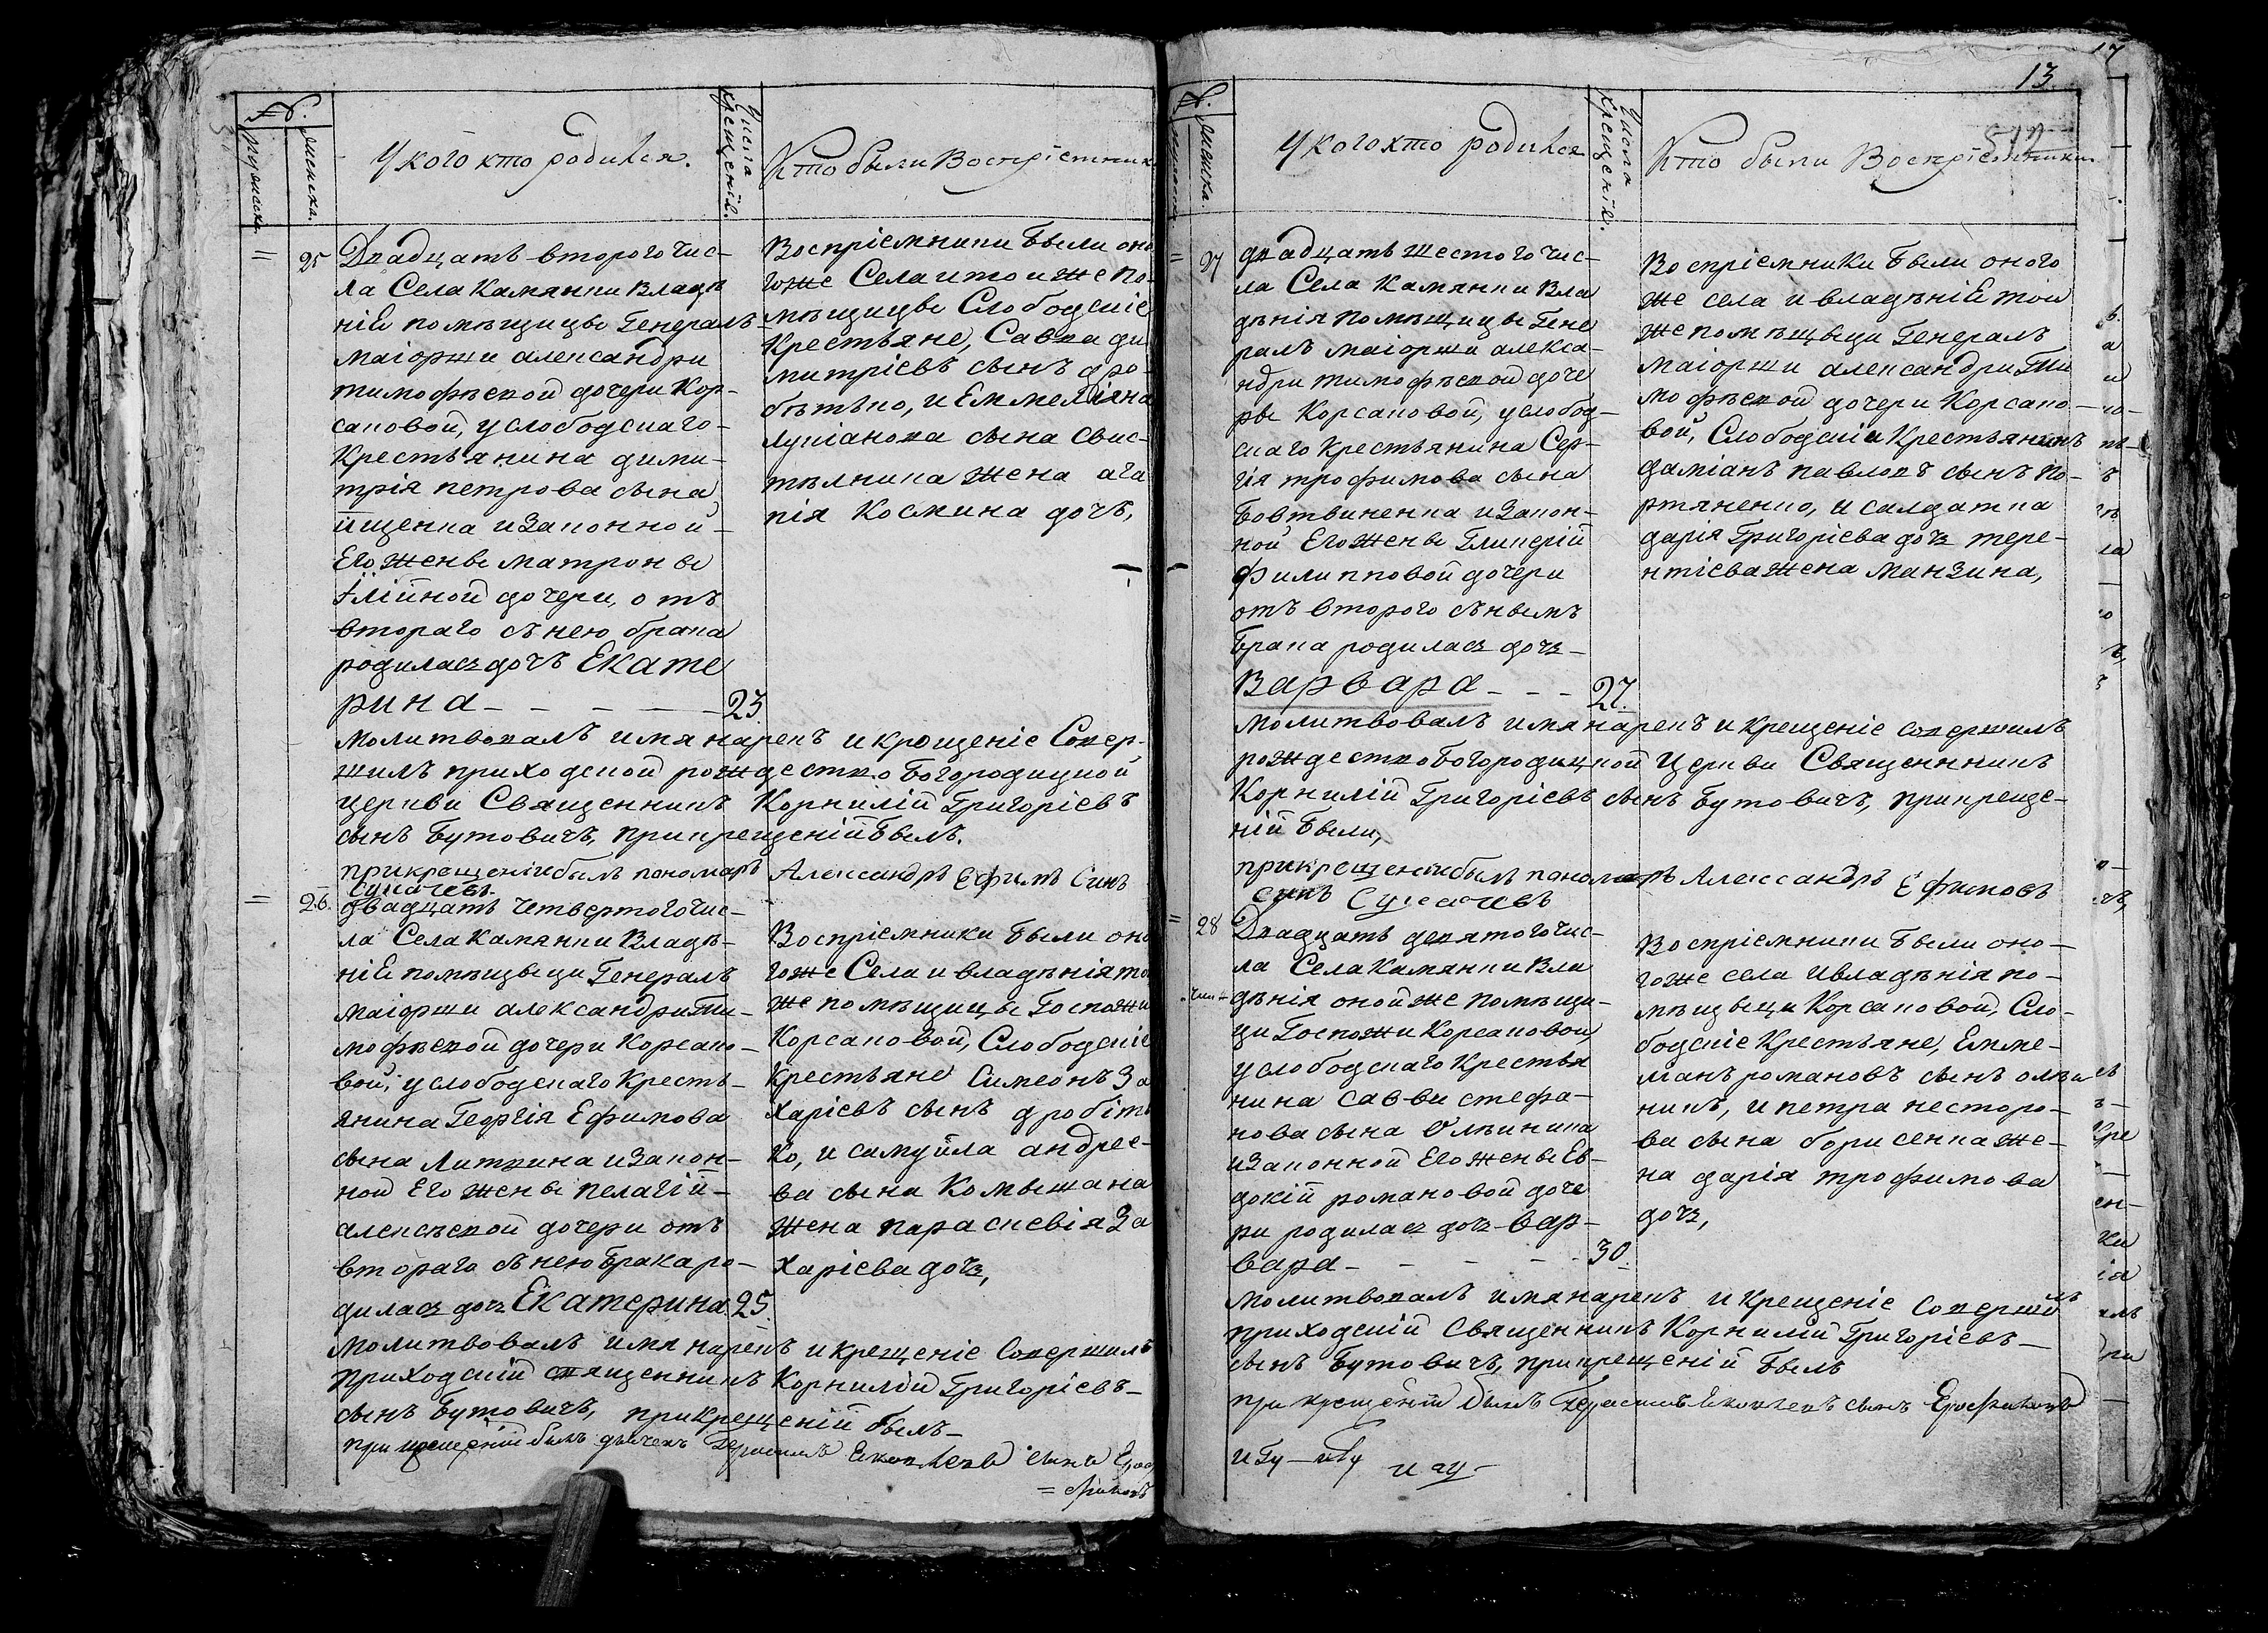 №.
мужеска.
женска.
У кого кто родился.
Числа
крещенія.
Кто были Воспріємники
=
25
Двадцать второго чис-
ла Села Камянки Владѣ
ніЕ помѣщицы Генералъ-
маіорши александри
тимофѣевой дочери Кор-
саковой, у слободскаго-
Крестьянина дими-
трія петрова сына
йщенка и Законной-
Его жены матроны
Ілійной дочери, отъ
втораго съ нею брака
родилась дочъ Екате
рина - - - - - 23.
Воспріємники были оно
гоже Села и тоиже по-
мѣщицы Слободскіе
Крестьяне, Савва ди
митріевъ сынъ дро-
бѣтько, и Еммеліяна
лукіанова сына Свис-
тѣлника жена ага
пія Космина дочъ,
молитвовалъ имя нарекъ и крещеніе Совер-
шилъ приходской рождество Богородицной
церкви Священникъ Корнилій Григоріевъ
сынъ Бутовичъ, при крещеніи былъ.
при крещеніи былъ пономаръ Александръ Ефимъ Синъ
Сукачевъ.
=
26.
двадцать четвертого чис-
ла Села Камянки Владѣ-
ніЕ помѣщыци Генералъ
маіорши александри Ти-
мофѣевой дочери Корсако-
вой, у слободскаго Кресть-
янина Георгія Ефимова
сына Литвина и Закон-
ной Его жены пелагій-
алексѣевой дочери отъ
втораго съ нею брака ро-
дилась дочъ Екатерина. 25.
Воспріємники были оно
гоже Села и владѣнія то
же помѣщицы Госпожи
Корсаковой, Слободскіе
Крестьяне Симеонъ За
харіевъ сынъ дробіть
ко, и самуйла андрее-
ва сына Комышана
жена параскевія За
харіева дочъ,
молитвовалъ имя нарекъ и крещеніе Совершилъ
приходскій священникъ Корнилій Григоріевъ-
сынъ Бутовичъ, при крещеній былъ-
при крещеній былъ дьячекъ Герасимъ Яковлевъ сынъ Ероф
= фіковъ
17
13.
512
№.
женска.
У кого кто родился
Числа
крещенія.
Кто были Воспріємники
=
27
двадцать шестого чис-
ла Села Камянки Вла
дѣнія помѣщицы Гене
ралъ маіорши алекса-
ндри тимофѣевой доче
ры Корсаковой, у слобод-
скаго Крестьянина Сер-
гія трофимова сына
Бовтвиненка и Закон-
ной Его жены Гликерій
филипповой дочери
отъ второго съ нымъ
брака родилась дочъ-
Варвара - - - 27.
Воспріємники были оного
же села и владѣніЕ тои
же помѣщыци Генералъ
маіорши александри Ти
мофѣевой дочери Корсако-
вой, Слободскіи Крестьянинъ
даміанъ павловъ сынъ По-
ртяненко, и салдатка
дарія Григоріева дочъ тере-
нтіева жена манзина,
молитвовалъ имя нарекъ и крещеніе совершилъ
рождество Богородицкой Церкви Священникъ
Корнилій Григоріевъ сынъ Бутовичъ, при креще-
ній были,
при крещеніи былъ пономаръ Александръ Ефимовъ
синъ Сукачевъ
=
28
Двадцать девятого чис-
ла Села Камянки Вла
дѣнія оной же помѣщи-
ци Госпожи Корсаковой,
у слободскаго Крестья
нина Савви стефа-
нова сына Олѣиника
и Законной Его жены Ев-
докій романовой доче
ри родилась дочъ-Вар-
вара - - - - 30.
Воспріємники были оно-
гоже села и владѣнія по-
мѣщыци Корсаковой, Сло-
бодскіе Крестьяне, Емме-
лианъ романовъ сынъ олѣи
никъ, и петра несторо-
ва сына борисенка же-
на дарія трофимова
дочъ,
Молитвовалъ имя нарекъ и Крещеніе Совершилъ
приходскій Священникъ Корнилій Григоріевъ-
сынъ Бутовичъ, при крещеній былъ
при крещеніи былъ Герасимъ Яковлевъ сынъ Ерофіковъ